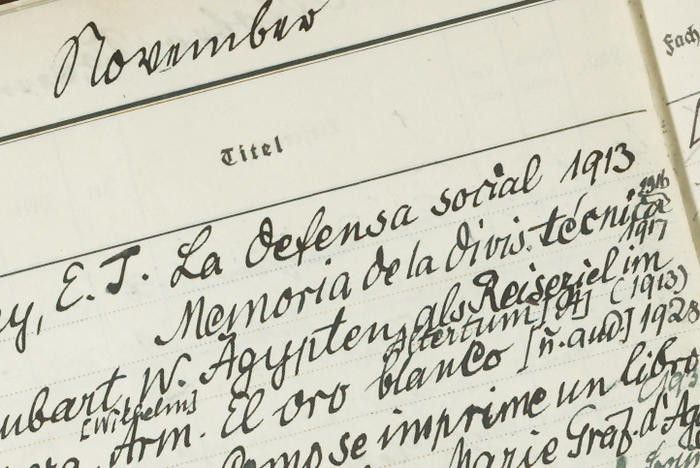 November
Fach
Titel
ey, E. T. La defensa social 1913
Memoria de la Divis. técnica 1916
1917
ubart, W. Ägypten als Reiseziel im
[Wilhelm] Altertum [04] (1913)
era, Arm. El oro blanco [u. and.] 1928
Como se imprime un libro
Marie Gräf. d'Ag